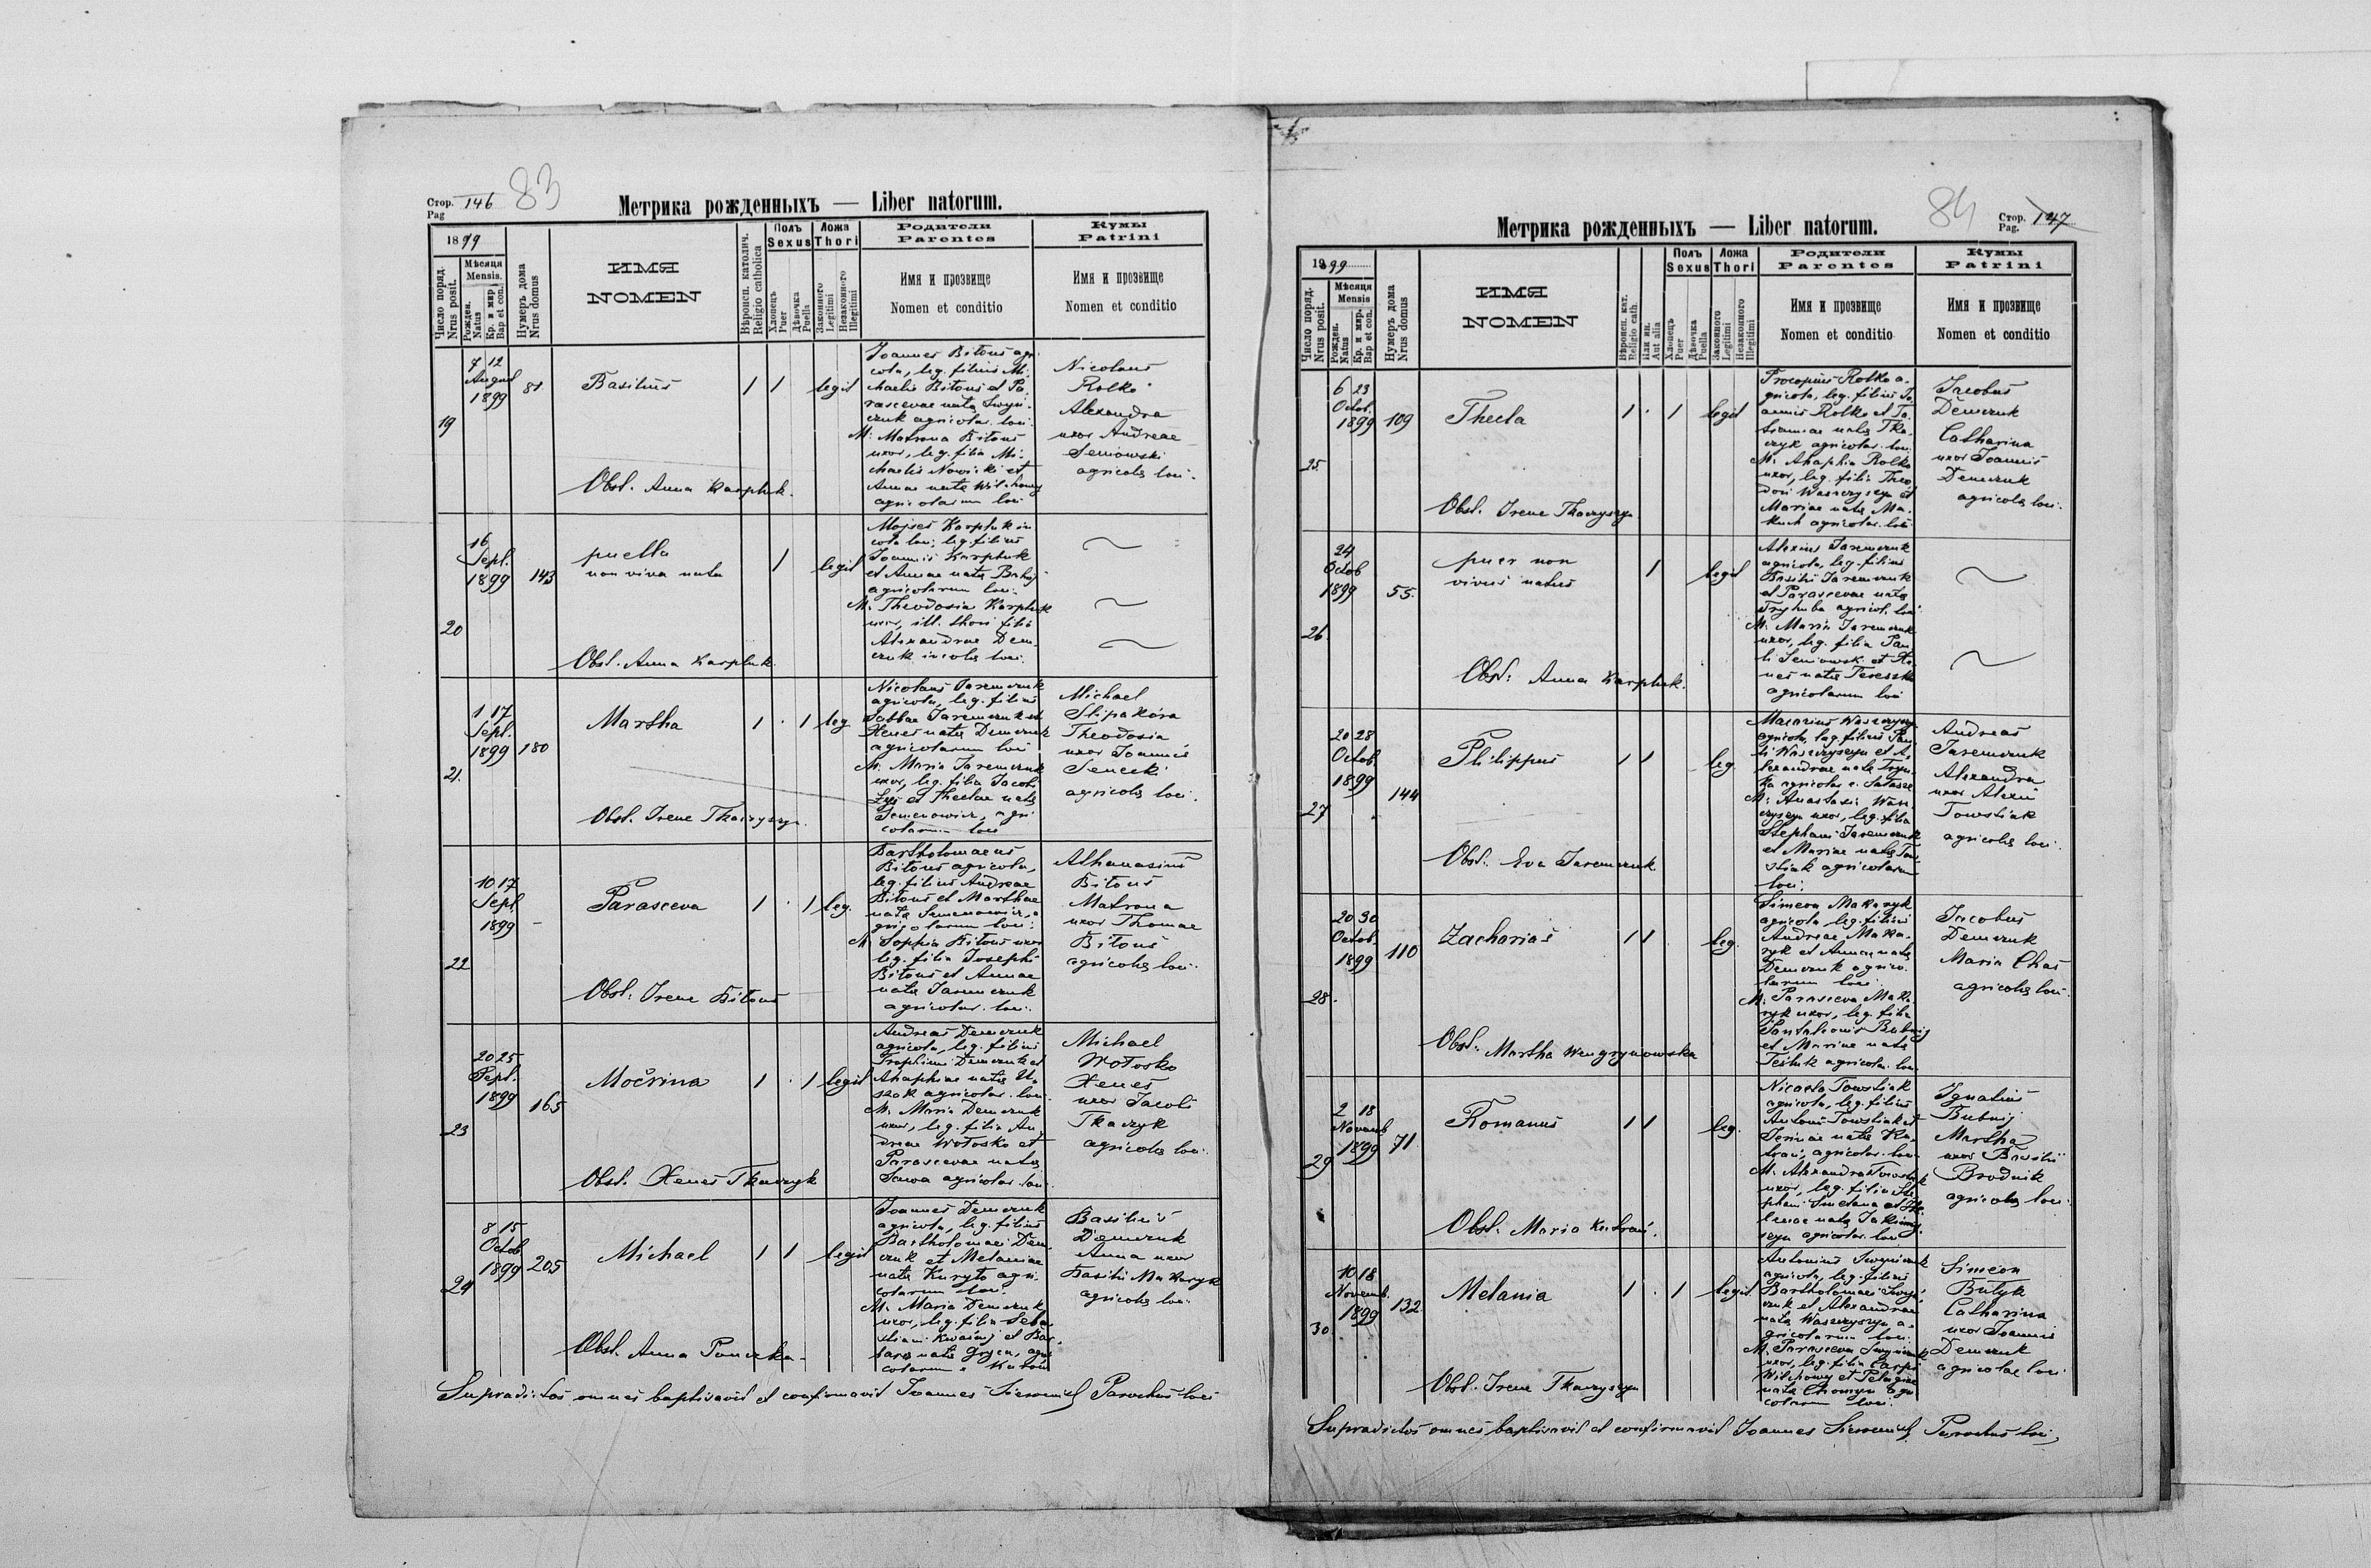 Стор. 146 83
Pag
Метрика рожденныхъ — Liber natorum.
1899
Число поряд. Nrus posit.
Мѣсяця Mensis.
Рожден. Natus
Кр. и мир Bap et con.
Нумеръ дома Nrus domus
ИМЯ
NOMEN
Вѣроисп. католич. Religio catholica
Полъ
Sexus
Хлопецъ Puer
Дѣвочка Puella
Ложа
Thori
Законного Legitimi
Незаконного Illegitimi
Родители
Parentes
Имя и прозвище
Nomen et conditio
Кумы
Patrini
Имя и прозвище
Nomen et conditio
19
7 12
August
1899
81
Basilius
1 1 legit
Joannes Bitous agri
cola, leg. filius Mi
chaelis Bitous et Pa
rascevae natae
czuk agricolar. loci
M. Matrona Bitous
uxor, leg. filia Mi
chaelis Nowicki et
Annae natae
agricolarum loci
Nicolaus
Rolko
Alexandra
uxor Andreae
Seniowski
agricolae loci.
Obst. Anna Karpluk.
20
16
Sept.
1899
143
puella
non viva nata
1 legit
Mojses Karpluk in
cola loci, leg. filius
Joannis Karpluk
et Annae natae
agricolarum loci.
M. Theodosia Karpluk
uxor, ill. thori filia
Alexandrae Dem
czuk incolae loci.
Obst. Anna Karpluk.
21.
1 17
Sept.
1899
180
Martha
1 . 1 leg
Nicolaus Jaremczuk
agricola, leg. filius
Sabbae Jaremczuk et
Xenes natae Demczuk
agricolarum loci
M. Maria Jaremczuk
uxor, leg. filia Jacobi
et Theclae natae
Semenowicz, agri
colarum loci
Michael
Slipakóra
Theodosia
uxor Joannis
Senecki
agricolae loci.
Obst. Irene Tkaczyszyn.
22
10 17
Sept.
1899
-
Parasceva
1 . 1 leg.
Bartholomaeus
Bitous agricola,
leg. filius Andreae
Bitous et Marthae
natae Semenowicz, a
gricolarum loci.
M. Sophia Bitous uxor
leg. filia Josephi
Bitous et Annae
natae Jaremczuk
agricolar. loci.
Athanasius
Bitous
Matrona
uxor Thomae
Bitous
agricolae loci.
Obst. Irene Bitous
23
20 25
Sept.
1899
165
Mocrina
1 . 1 legit
Andreas Demczuk
agricola, leg. filius
Trophimi Demczuk et
Ahaphiae natae U
szak agricolar. loci
M. Maria Demczuk
uxor, leg. filia An
dreae Wołosko et
Parascevae natae
Sawa agricolar. loci.
Michael
Wołosko
Xenes
uxor Jacobi
Tkaczyk
agricolae loci.
Obst. Xenes Tkaczyk
24
8 15
Octob
1899
205
Michael
1 1 legit
Joannes Demczuk
agricola, leg. filius
Bartholomaei Dem
czuk et Melaniae
natae Kuryło agri
colarum loci.
M. Maria Demczuk,
uxor, leg. filia Seba
stiani et Bar
barae natae Gryca, agri
colarum
Basilius
Demczuk
Anna uxor
Basilii Makaryk
agricolae loci.
Obst. Anna
Supradictos omnes baptisavit et confirmavit Joannes Parochus loci
84 Стор. 147
Pag.
Метрика рожденныхъ — Liber natorum.
1899
Число поряд. Nrus posit.
Мѣсяця Mensis
Рожден. Natus
Кр. и мир. Bap et con.
Нумеръ дома Nrus domus
ИМЯ
NOMEN
Вѣроисп. кат. Religio cath.
Или ин. Aut alia
Полъ
Sexus
Хлопецъ Puer
Дѣвочка Puella
Ложа
Thori
Законного Legitimi
Незаконного Illegitimi
Родители
Parentes
Имя и прозвище
Nomen et conditio
Кумы
Patrini
Имя и прозвище
Nomen et conditio
25.
6 23
Octob.
1899
109
Thecla
1 . 1 legit
Procopius Rolko a
gricola, leg. filius Jo
annis Rolko et Ta
tianae natae Tka
czyk agricolar. loci
M. Ahaphia Rolko
uxor, leg. filia Theo
dori Waszczyszyn et
Mariae natae Ma
kuch agricolar. loci
Jacobus
Demczuk
Catharina
uxor Joannis
Demczuk
agricolae loci.
Obst. Irene Tkaczyszyn
26.
24
Octob
1899
55.
puer non
vivus natus
1 legit
Alexius Jaremczuk
agricola, leg. filius
Basilii Jaremczuk
et Parascevae natae
Tryhuba agricol. loci
M. Maria Jaremczuk
uxor, leg. filia Pau
li Seniowski et Xe
nes natae Tereszko
agricolarum loci
Obst: Anna Karpluk.
27
20 28
Octob.
1899
144
Philippus
1 1 leg.
Macarius Waszczyszyn
agricola, leg. filius Pau
li Waszczyszyn et A
lexandrae natae
M. Anastasia Wasz
czyszyn uxor, leg. filia
Stephani Jaremczuk
et Mariae natae Tow
stiak agricolarum
loci.
Andreas
Jaremczuk
Alexandra
uxor Alexii
Towstiak
agricolae loci.
Obst. Eva Jaremczuk
28.
20 30
Octob.
1899
110
Zacharias
1 1 leg.
Simeon Makaryk
agricola, leg. filius
Andreae Maka
ryk et Annae natae
Demczuk agrico
larum loci.
M. Parasceva Maka
ryk uxor, leg. filia
Pantaleonis Bubnij
et Mariae natae
agricolar. loci.
Jacobus
Demczuk
Maria Chas
agricolae loci.
Obst. Martha Wengrynowska
29
2 18
Novemb
1899
71
Romanus
1 1 leg.
Nicolo Towstiak
agricola, leg. filius
Antonii Towstiak et
natae
agricolar. loci
M. Alexandra Towstiak
uxor, leg. filia Ste
phani Smetana et He
lenae natae
agricolar. loci
Ignatius
Bubnij
Martha
uxor Basilii
Brodnik
agricolae loci.
Obst. Maria
30.
10 18
Novemb.
1899
132
Melania
1 . 1 legit
Antonius
agricola, leg. filius
Bartholomaei
czuk et Alexandrae
natae Waszczyszyn a
gricolarum loci.
M. Parasceva
uxor, leg. filia Carpi
et Pelagiae
natae agri
colarum loci.
Simeon
Butyk
Catharina
uxor Joannis
Demczuk
agricolae loci
Obst. Irene Tkaczyszyn
Supradictos omnes baptisavit et confirmavit Joannes Parochus loci